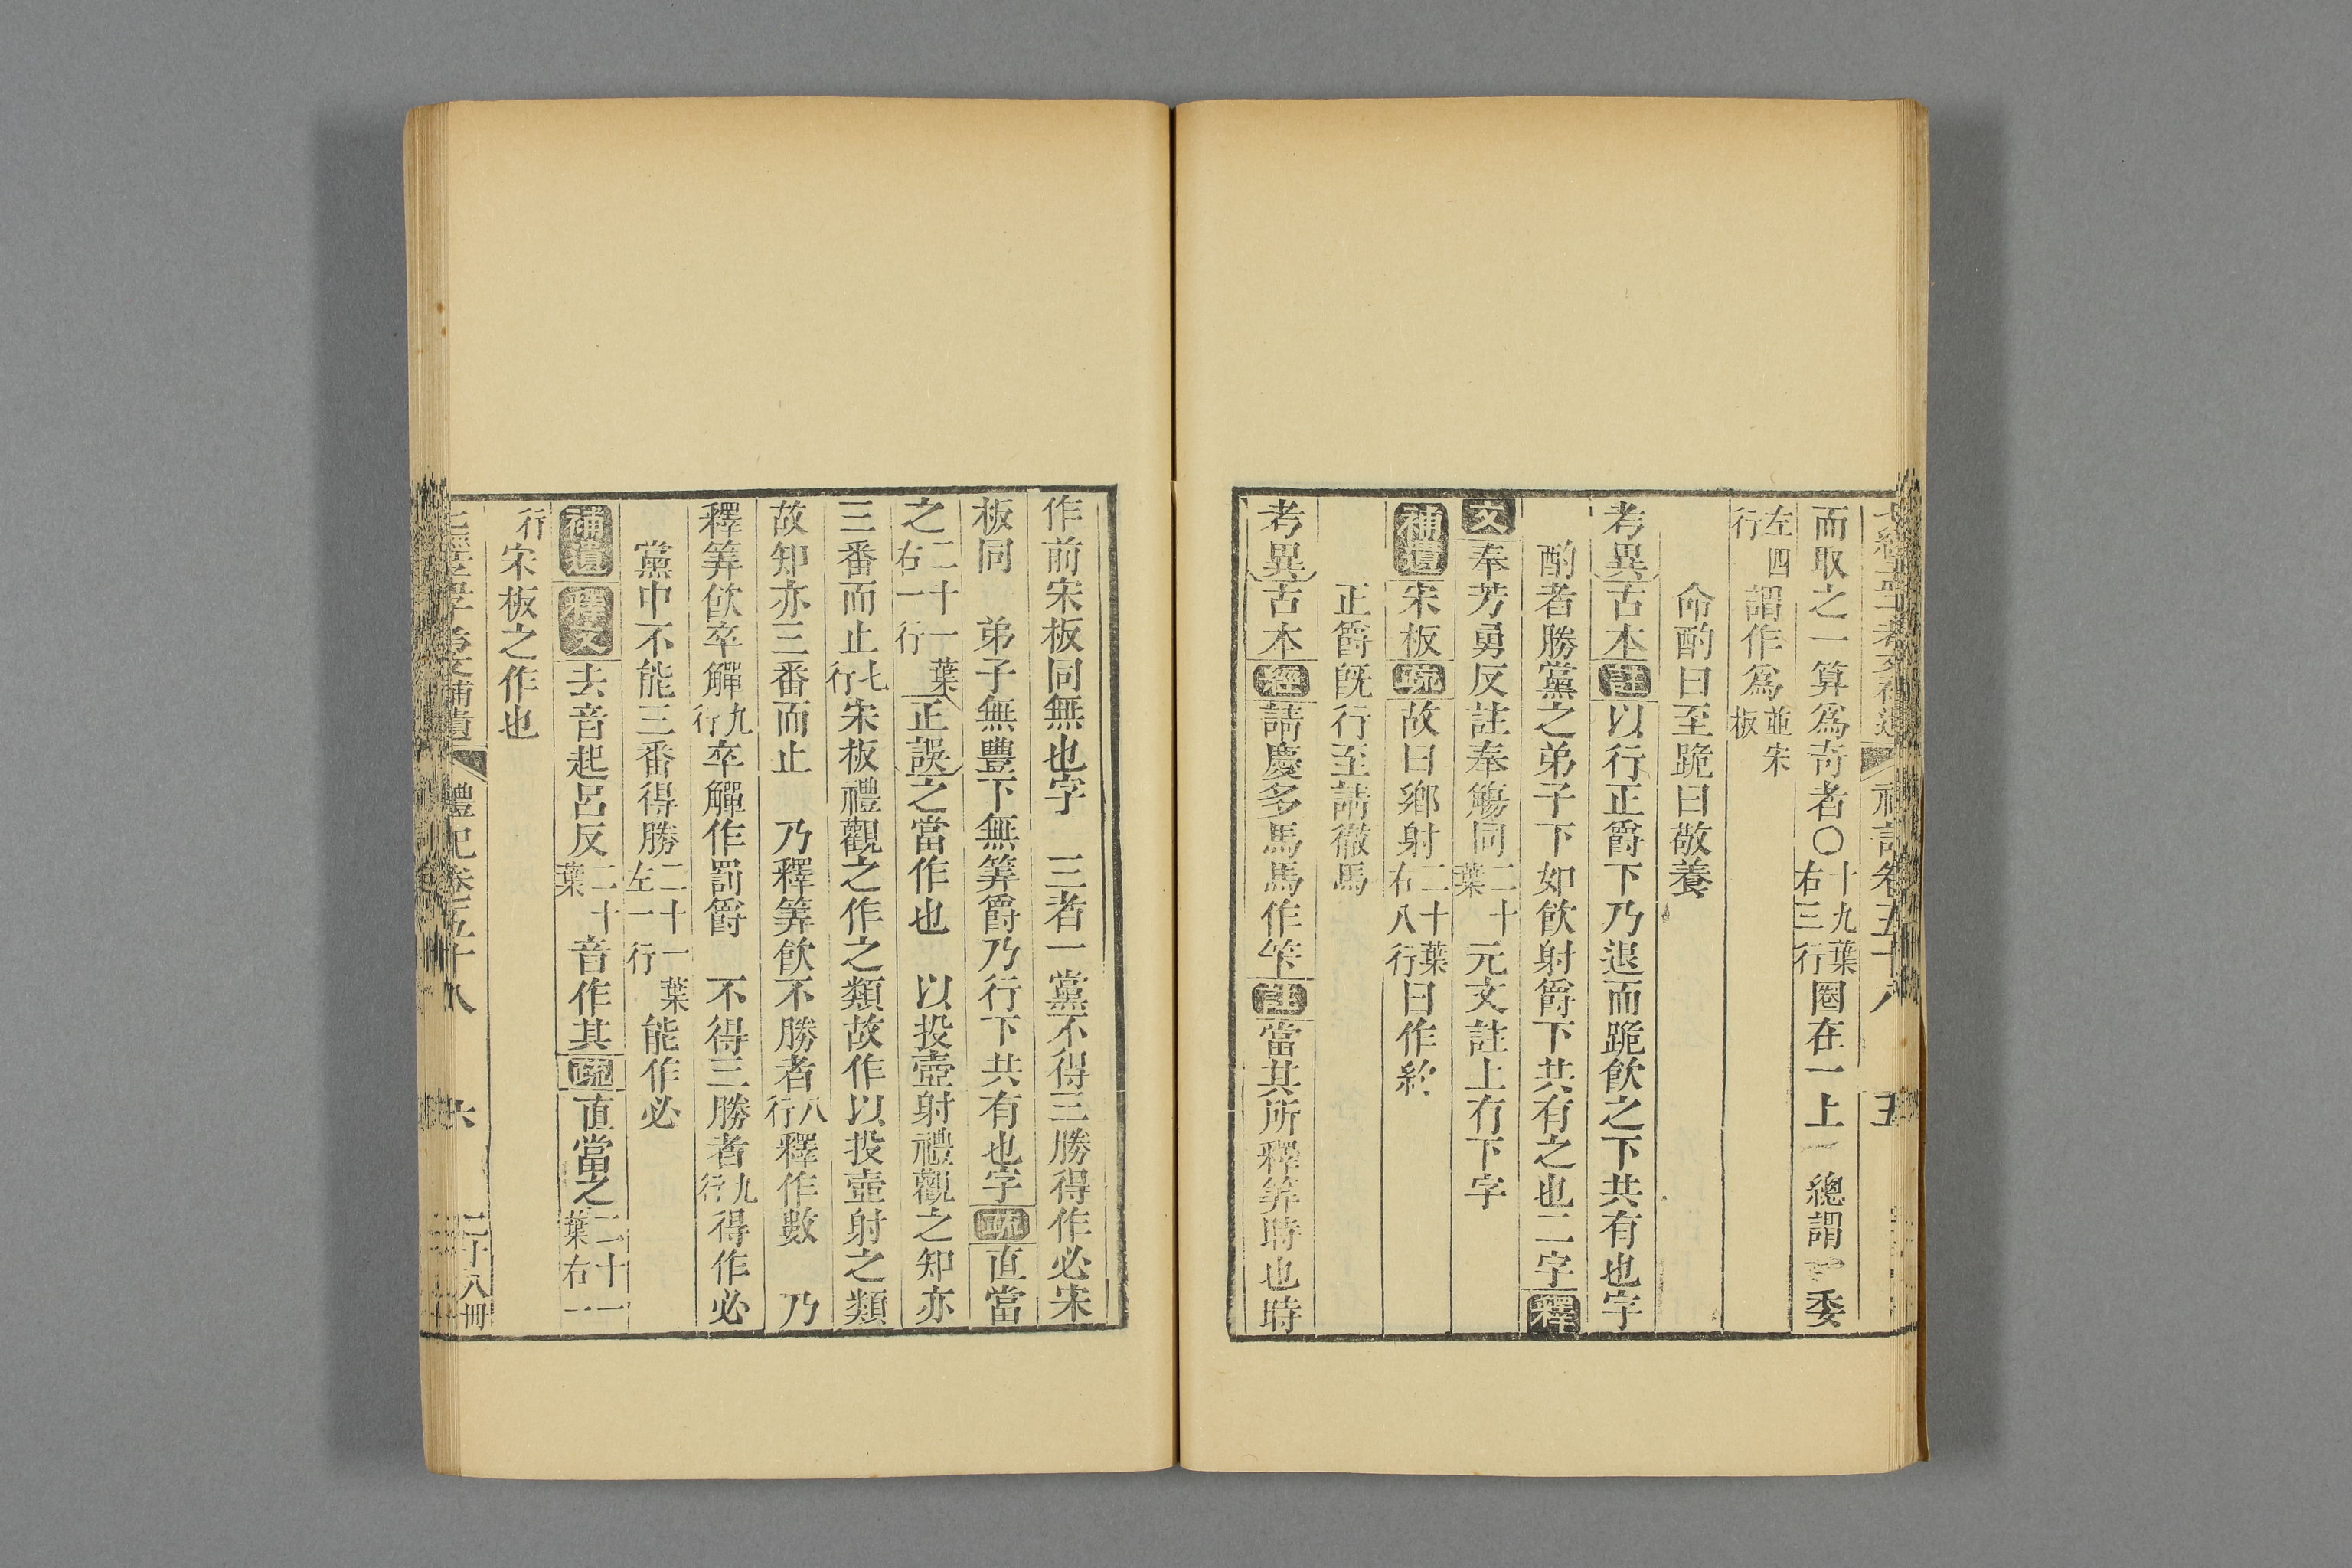 禮記卷五十八 五
而取之一算爲奇者○十九葉右三行圈在一上 總謂 委
左四行謂作爲並宋板
命酌曰至跪曰敬養
考異古本註以行正爵下乃退而跪飲之下共有也字
酌者勝黨之弟子下如飲射爵下共有之也二字釋
文奉芳勇反註奉觴同二十葉元文註上有下字
補遺宋板疏故曰鄉射二十葉右八行曰作
正爵既行至請徹馬
考異古本經請慶多馬馬作筭註當其所釋筭時也時
作前宋板同無也字 三者一黨不得三勝得作必宋
板同 弟子無豐下無筭爵乃行下共有也字疏直當
之二十一葉右一行正誤之當作也 以投壺射禮觀之知亦
三番而止七行宋板禮觀之作之類故作以投壺射之類
故知亦三番而止 乃釋筭飲不勝者八行釋作數 乃
釋筭飲卒觶九行卒觶作罰爵 不得三勝者九行得作必
黨中不能三番得勝二十一葉左一行能作必
補遺釋文去音起呂反二十葉音作其疏直當之二十一葉右一
行宋板之作也
七經孟子考文補遺 禮記卷五十八 六 二十八冊